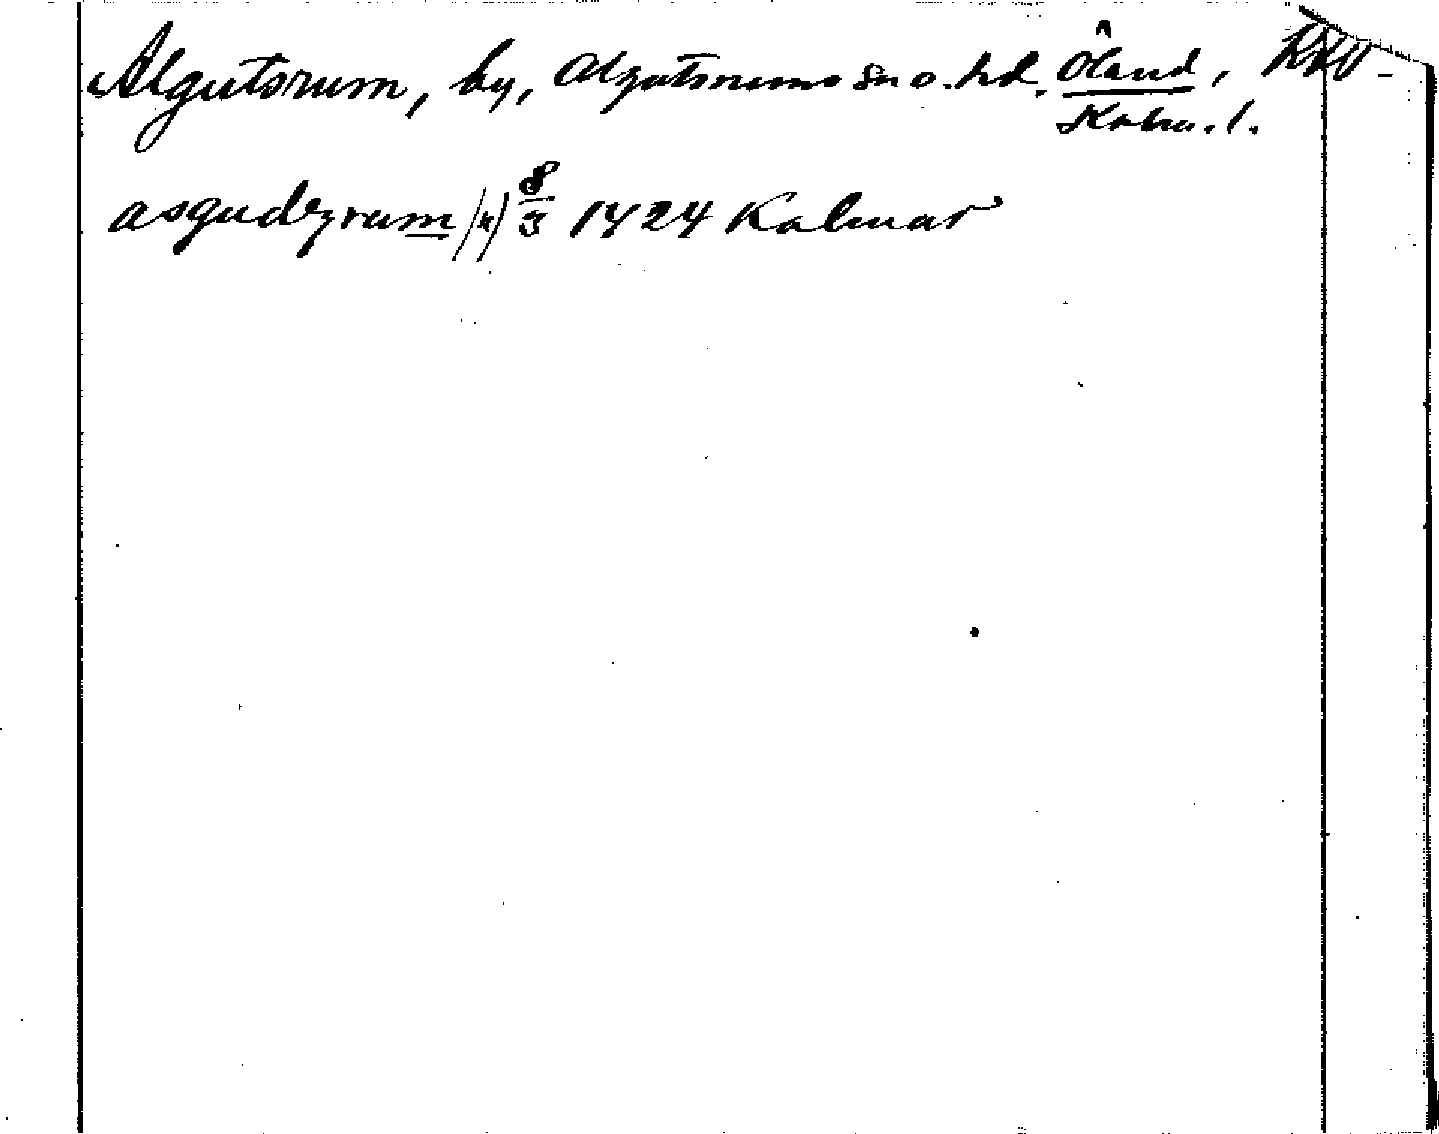 Algutsrum, by, Algutsrums sn o. hd. Öland,
Kalm. l.
asgudzrum (*) 8/3 1424 Kalmar